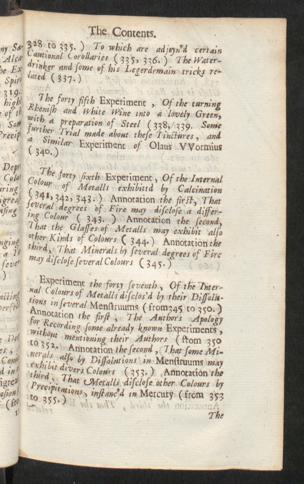 The Contents.
328 to 335. ) To which are adjoyn'd certain
Cautional Corollaries ( 335, 336. ) The Water-
drinker and some of his Legerdemain tricks re-
lated ( 337. )
The forty fifth Experiment , Of the turning
Rhenish and White Wine into a lovely Green,
with a preparation of Steel ( 338, 339. Some
further Trial made about these Tinctures, and
a Similar Experiment of Olaus VVormius
( 340. )
The forty sixth Experiment, Of the Internal
Colour of Metals exhibited by Calcination
( 341, 342, 343. ) Annotation the first, That
several degrees of Fire may disclose a differ-
ing Colour ( 343. ) Annotation the second,
That the Glasses of Metals may exhibit also
other Kinds of Colours ( 344. ) Annotation the
third, That Minerals by several degrees of Fire
may disclose several Colours ( 345. )
Experiment the forty seventh, Of the Inter-
nal Colours of Metalls disclos'd by their Dissolu-
tions in several Menstruums ( from 345 to 350. )
Annotation the first, The Authors Apology
for Recording some already known Experiments,
without mentioning their Authors ( from 350
to 352. Annotation the second, That some Mi-
nerals also by Dissolutions in Menstruums may
exhibit divers Colours ( 353. ) Annotation the
third, That Metalls disclose other Colours by
Precipitations, instanc'd in Mercury ( from 353
to 355. )
The